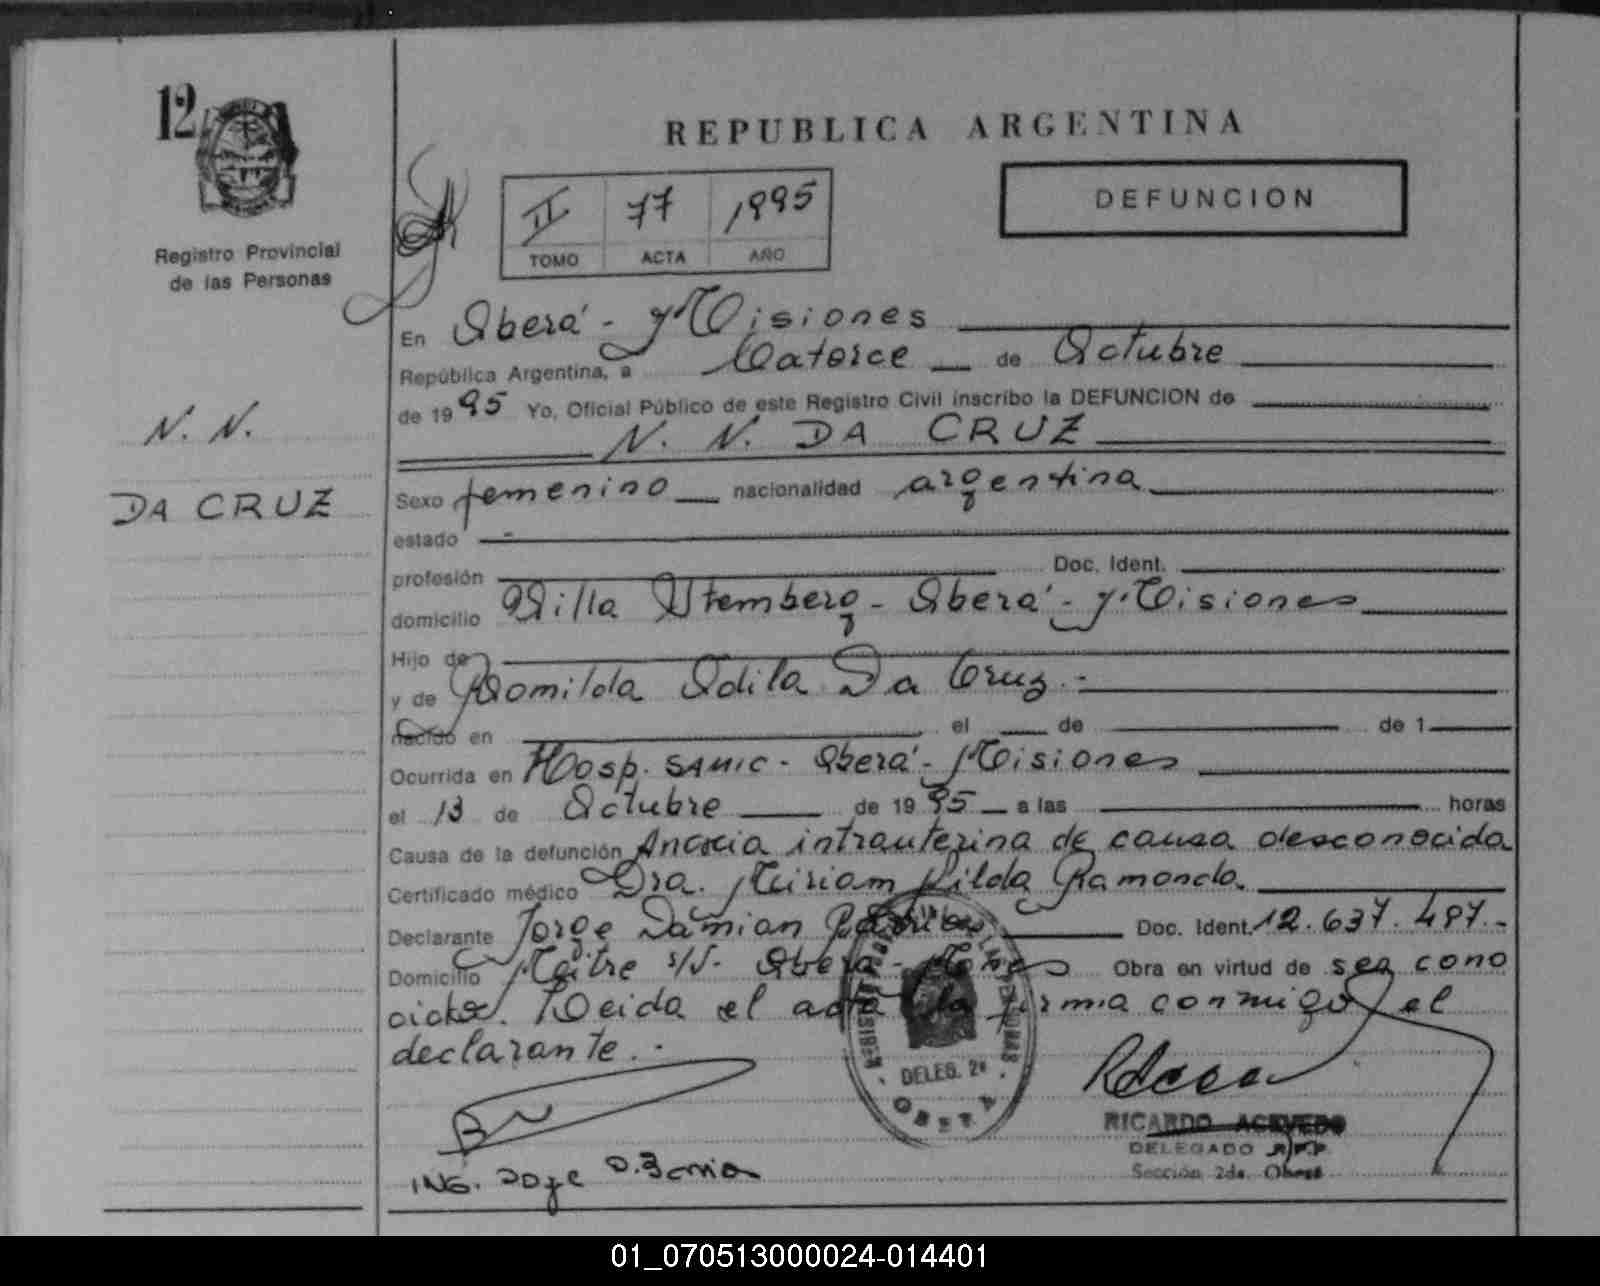 12
REPUBLICA ARGENTINA
DEFUNCION
II 77 1995
TOMO ACTA AÑO
Registro Provincial
de las Personas
N. N.
DA CRUZ
En Oberá - Misiones
República Argentina, a Catorce de Octubre
de 1995 Yo, Oficial Público de este Registro Civil inscribo la DEFUNCION de
N. N. DA CRUZ
Sexo femenino nacionalidad argentina
estado -
profesión Doc. Ident.
domicilio Villa Stemberg - Oberá - Misiones
Hijo de
y de Romilda Odila Da Cruz.-
nacido en el de de 1
Ocurrida en Hosp. SAMIC - Oberá - Misiones
el 13 de Octubre de 1995 a las horas
Causa de la defunción Anoxia intrauterina de causa desconocida
Certificado médico Dra. Miriam Ramonda.
Declarante Jorge Damian Doc. Ident. 12.637.497.-
Domicilio Mitre s/N- Oberá - Mnes Obra en virtud de ser cono
cido. Leida el acta la firma conmigo el
declarante.-
DELEG. 2ª
OBERA
RICARDO ACEVEDO
DELEGADO R.P.P.
Sección 2da. Oberá
ING.
01_070513000024-014401